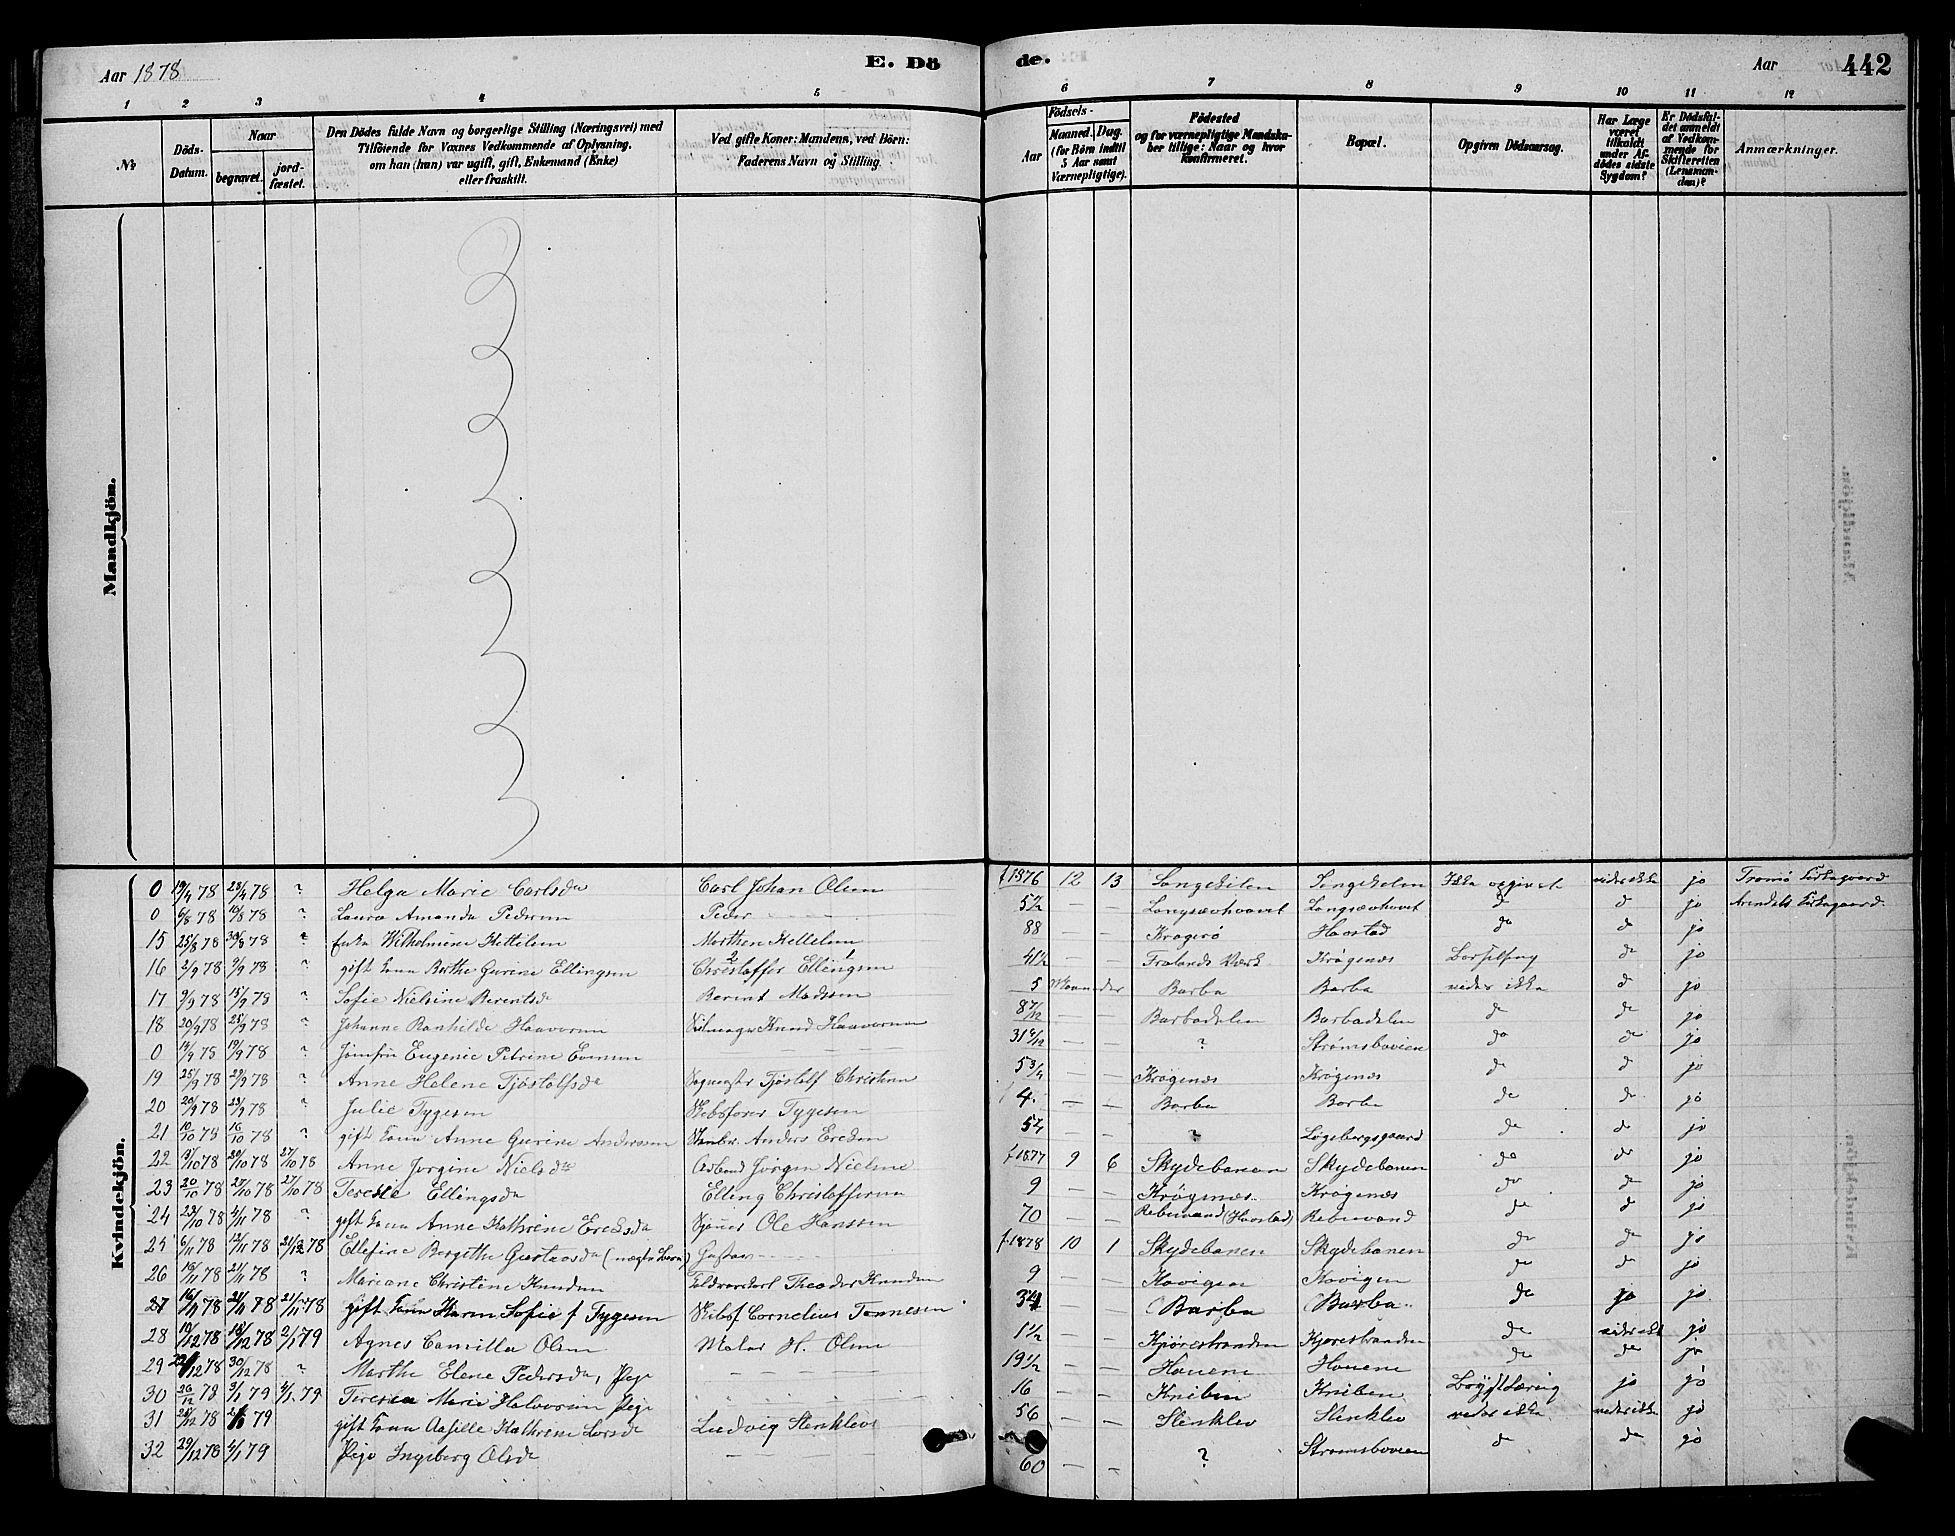 Aar 1878
E. Dö
de.
Aar
442
1 2 3 4 5 6 7 8 9 10 11 12
No
Döds-Datum.
Naar
begravet.
jord-fæstet.
Den Dödes fulde Navn og borgerlige Stilling (Næringsvei) med
Tilföiende for Voxnes Vedkommende af Oplysning,
om han (hun) var ugift, gift, Enkemand (Enke)
eller fraskilt.
Ved gifte Koner: Mandens, ved Börn:
Faderens Navn og Stilling.
Födsels-
Aar
Maaned. Dag.
(for Börn indtil
5 Aar samt
Værnepligtige).
Födested
og for værnepligtige Mandska-
ber tillige: Naar og hvor
konfirmeret.
Bopæl.
Opgiven Dödsaarsag.
Har Læge
været
tilkaldt
under Af-
dödes sidste
Sygdom?
Er Dödsfal-
det anmeldt
af Vedkom-
mende for
Skifteretten
(Lensman-
den)?
Anmærkninger.
Mandkjön.
Kvindekjön.
0 19/4 78 23/4 78 ? Helga Marie Carlsda Carl Johan Olsen f 1876 12 13 Songekilen Songekilen Ikke opgivet vides ikke jo Tromö Kirkegaard
0 6/8 78 10/8 78 ? Laura Amanda Pedersen Peder — — — Langsævhovet Langsævhovet do d jo Arendals Kirkegaard
15 25/8 78 30/8 78 ? Enke Wilhelmine Kettelsen Morthen Kettelsen 88 — — Kragerö Haastad do d jo
16 2/9 78 9/9 78 ? gift Kone Berthe Gurine Ellingsen Christoffer Ellingsen 41½ — — Frolands Værk Krögenes d jo
17 9/9 78 15/9 78 ? Sofie Nielsine Berentsda Berent Madssen 5 Maaneder Barbu Barbu vides ikke d jo
18 20/9 78 25/9 78 ? Johanne Ranhilde Haavorsen Knud Haavorsen 8 7/12 — — Barbudalen Barbudalen do d jo
0 14/9 78 19/9 78 ? Jomfru Eugenie Petrine Evensen — — — 31 — — ? Strömsbovien do do jo
19 25/9 78 29/9 78 ? Anne Helene Tjöstolfsda Tjöstolf Christian 5¾ Krögenes Krögenes do d jo
20 20/9 78 23/9 78 ? Julie Tygesen Skibsförer Tygesen 4 — — Barbu Barbu do d jo
21 10/10 78 16/10 78 ? gift Kone Anne Gurine Andersen Anders Ereksen — — ? Lögebergsgaard do d jo
22 /10 78 20/10 78 27/10 78 Anne Jörgine Nielsda Jörgen Nielsen f 1877 9 6 Skydebanen Skydebanen do do jo
23 20/10 78 27/10 78 27/10 78 Terese Ellingsda Elling Christoffersen 9 — — Krögenes Krögenes do d jo
24 23/10 78 2/11 78 ? gift Kone Anne Kathrine Ereksda Ole Hanssen 70 — — Rebuvand (Haastad) Rebuvand do d jo
25 6/11 78 12/11 78 21/12 78 Ellefine Bergithe Gustavsda (uægte Barn) Gustav — — f 1878 10 1 Skydebanen Skydebanen do do jo
26 16/11 78 21/11 78 ? Mariane Christine Knudsen Theodor Knudsen 9 — — Havigen Havigen do do jo
27 16/11 78 21/11 78 21/11 78 gift Kone Karen Sofie f Tygesen Skibsf Cornelius Tönnesen 34 — — Barbu Barbu do jo jo
28 10/12 78 18/12 78 2/1 79 Agnes Camilla Olsen H. Olsen 1½ — — Kjörrestranden Kjörestranden do vides ikke jo
29 22/12 78 30/12 78 ? Marthe Elene Pedersda, Pige 19½ — — Havene Havene do do jo
30 26/12 78 3/1 79 3/1 79 Teresea Marie Halvorsen Pige 16 — — Kniben Kniben jo jo
31 78 79 gift Kone Kathrine Larsda Ludvig Stenklev 56 — — Stenklev Stenklev vides ikke vides ikke jo
32 29/12 78 4/1 79 Pige Ingeberg Olsda — — 60 — — ? Strömsbovien d do jo